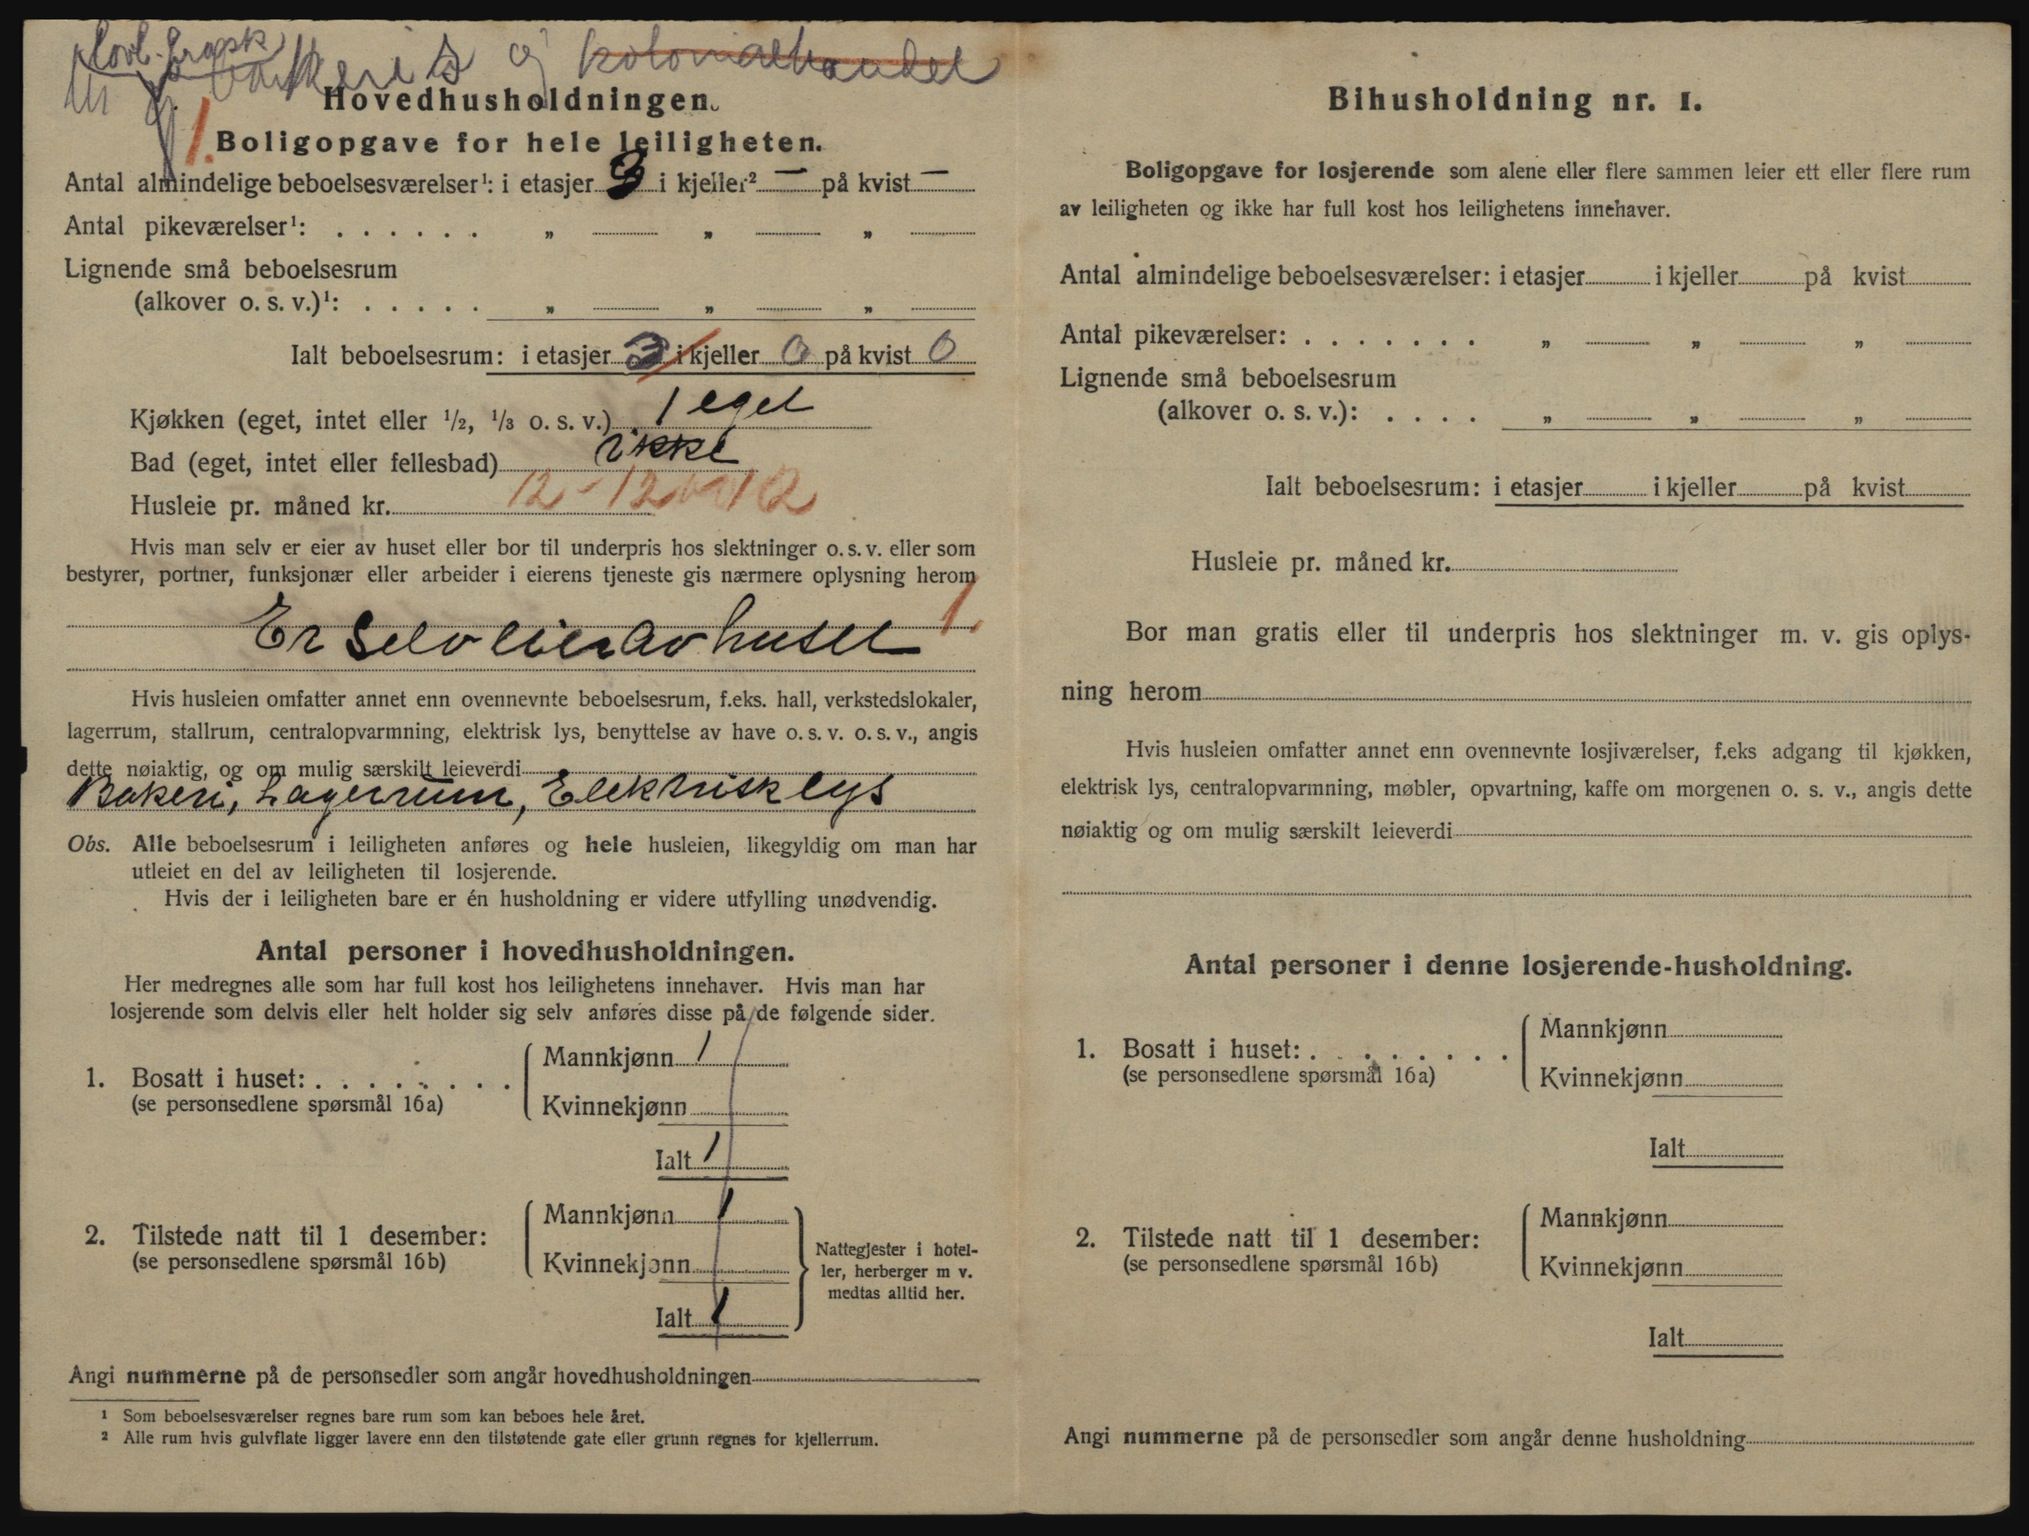 bakeri og kolonialhandel
Hovedhusholdningen.
1.
Boligopgave for hele leiligheten.
Antal almindelige beboelsesværelser¹: i etasjer 3 i kjeller² — på kvist —
Antal pikeværelser¹: . . . . . . „ „ „
Lignende små beboelsesrum
(alkover o. s. v.)¹: . . . . . „ „ „
Ialt beboelsesrum: i etasjer 3 i kjeller 0 på kvist 0
Kjøkken (eget, intet eller ½, ⅓ o. s. v.) 1 eget
Bad (eget, intet eller fellesbad) ikke
Husleie pr. måned kr. 12 - 12
Hvis man selv er eier av huset eller bor til underpris hos slektninger o. s. v. eller som
bestyrer, portner, funksjonær eller arbeider i eierens tjeneste gis nærmere oplysning herom
1.
Er selv eier av huset
Hvis husleien omfatter annet enn ovennevnte beboelsesrum, f.eks. hall, verkstedslokaler,
lagerrum, stallrum, centralopvarmning, elektrisk lys, benyttelse av have o. s. v. o. s. v., angis
dette nøiaktig, og om mulig særskilt leieverdi
Bakeri, Lagerrum, Elektrisk lys
Obs. Alle beboelsesrum i leiligheten anføres og hele husleien, likegyldig om man har
utleiet en del av leiligheten til losjerende.
Hvis der i leiligheten bare er én husholdning er videre utfylling unødvendig.
Antal personer i hovedhusholdningen.
Her medregnes alle som har full kost hos leilighetens innehaver. Hvis man har
losjerende som delvis eller helt holder sig selv anføres disse på de følgende sider.
1. Bosatt i huset: . . . . . . . .
(se personsedlene spørsmål 16a)
Mannkjønn 1
Kvinnekjønn
Ialt 1
2. Tilstede natt til 1 desember:
(se personsedlene spørsmål 16b)
Mannkjønn 1
Kvinnekjønn
Ialt 1
Nattegjester i hotel-
ler, herberger m v.
medtas alltid her.
Angi nummerne på de personsedler som angår hovedhusholdningen
¹ Som beboelsesværelser regnes bare rum som kan beboes hele året.
² Alle rum hvis gulvflate ligger lavere enn den tilstøtende gate eller grunn regnes for kjellerrum.
Bihusholdning nr. 1.
Boligopgave for losjerende som alene eller flere sammen leier ett eller flere rum
av leiligheten og ikke har full kost hos leilighetens innehaver.
Antal almindelige beboelsesværelser: i etasjer i kjeller på kvist
Antal pikeværelser: . . . . . . . „ „ „
Lignende små beboelsesrum
(alkover o. s. v.): . . . . „ „ „
Ialt beboelsesrum: i etasjer i kjeller på kvist
Husleie pr. måned kr.
Bor man gratis eller til underpris hos slektninger m. v. gis oplys-
ning herom
Hvis husleien omfatter annet enn ovennevnte losjiværelser, f.eks adgang til kjøkken,
elektrisk lys, centralopvarmning, møbler, opvartning, kaffe om morgenen o. s. v., angis dette
nøiaktig og om mulig særskilt leieverdi
Antal personer i denne losjerende-husholdning.
1. Bosatt i huset: . . . . . . . .
(se personsedlene spørsmål 16a)
Mannkjønn
Kvinnekjønn
Ialt
2. Tilstede natt til 1 desember:
(se personsedlene spørsmål 16b)
Mannkjønn
Kvinnekjønn
Ialt
Angi nummerne på de personsedler som angår denne husholdning